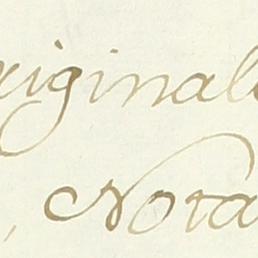 riginal
, Nota